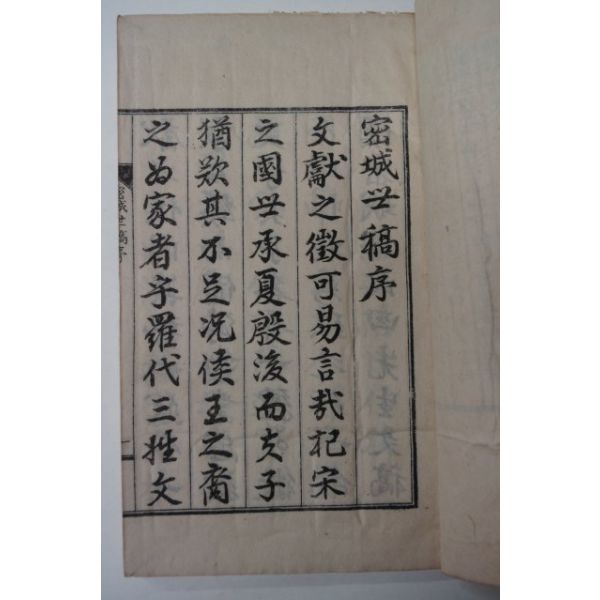 密城世稿序
文獻之徵可易言哉杞宋
之國世承夏殷後而夫子
猶歎其不足況侯王之裔
之為家者乎羅代三姓文
密城世稿序